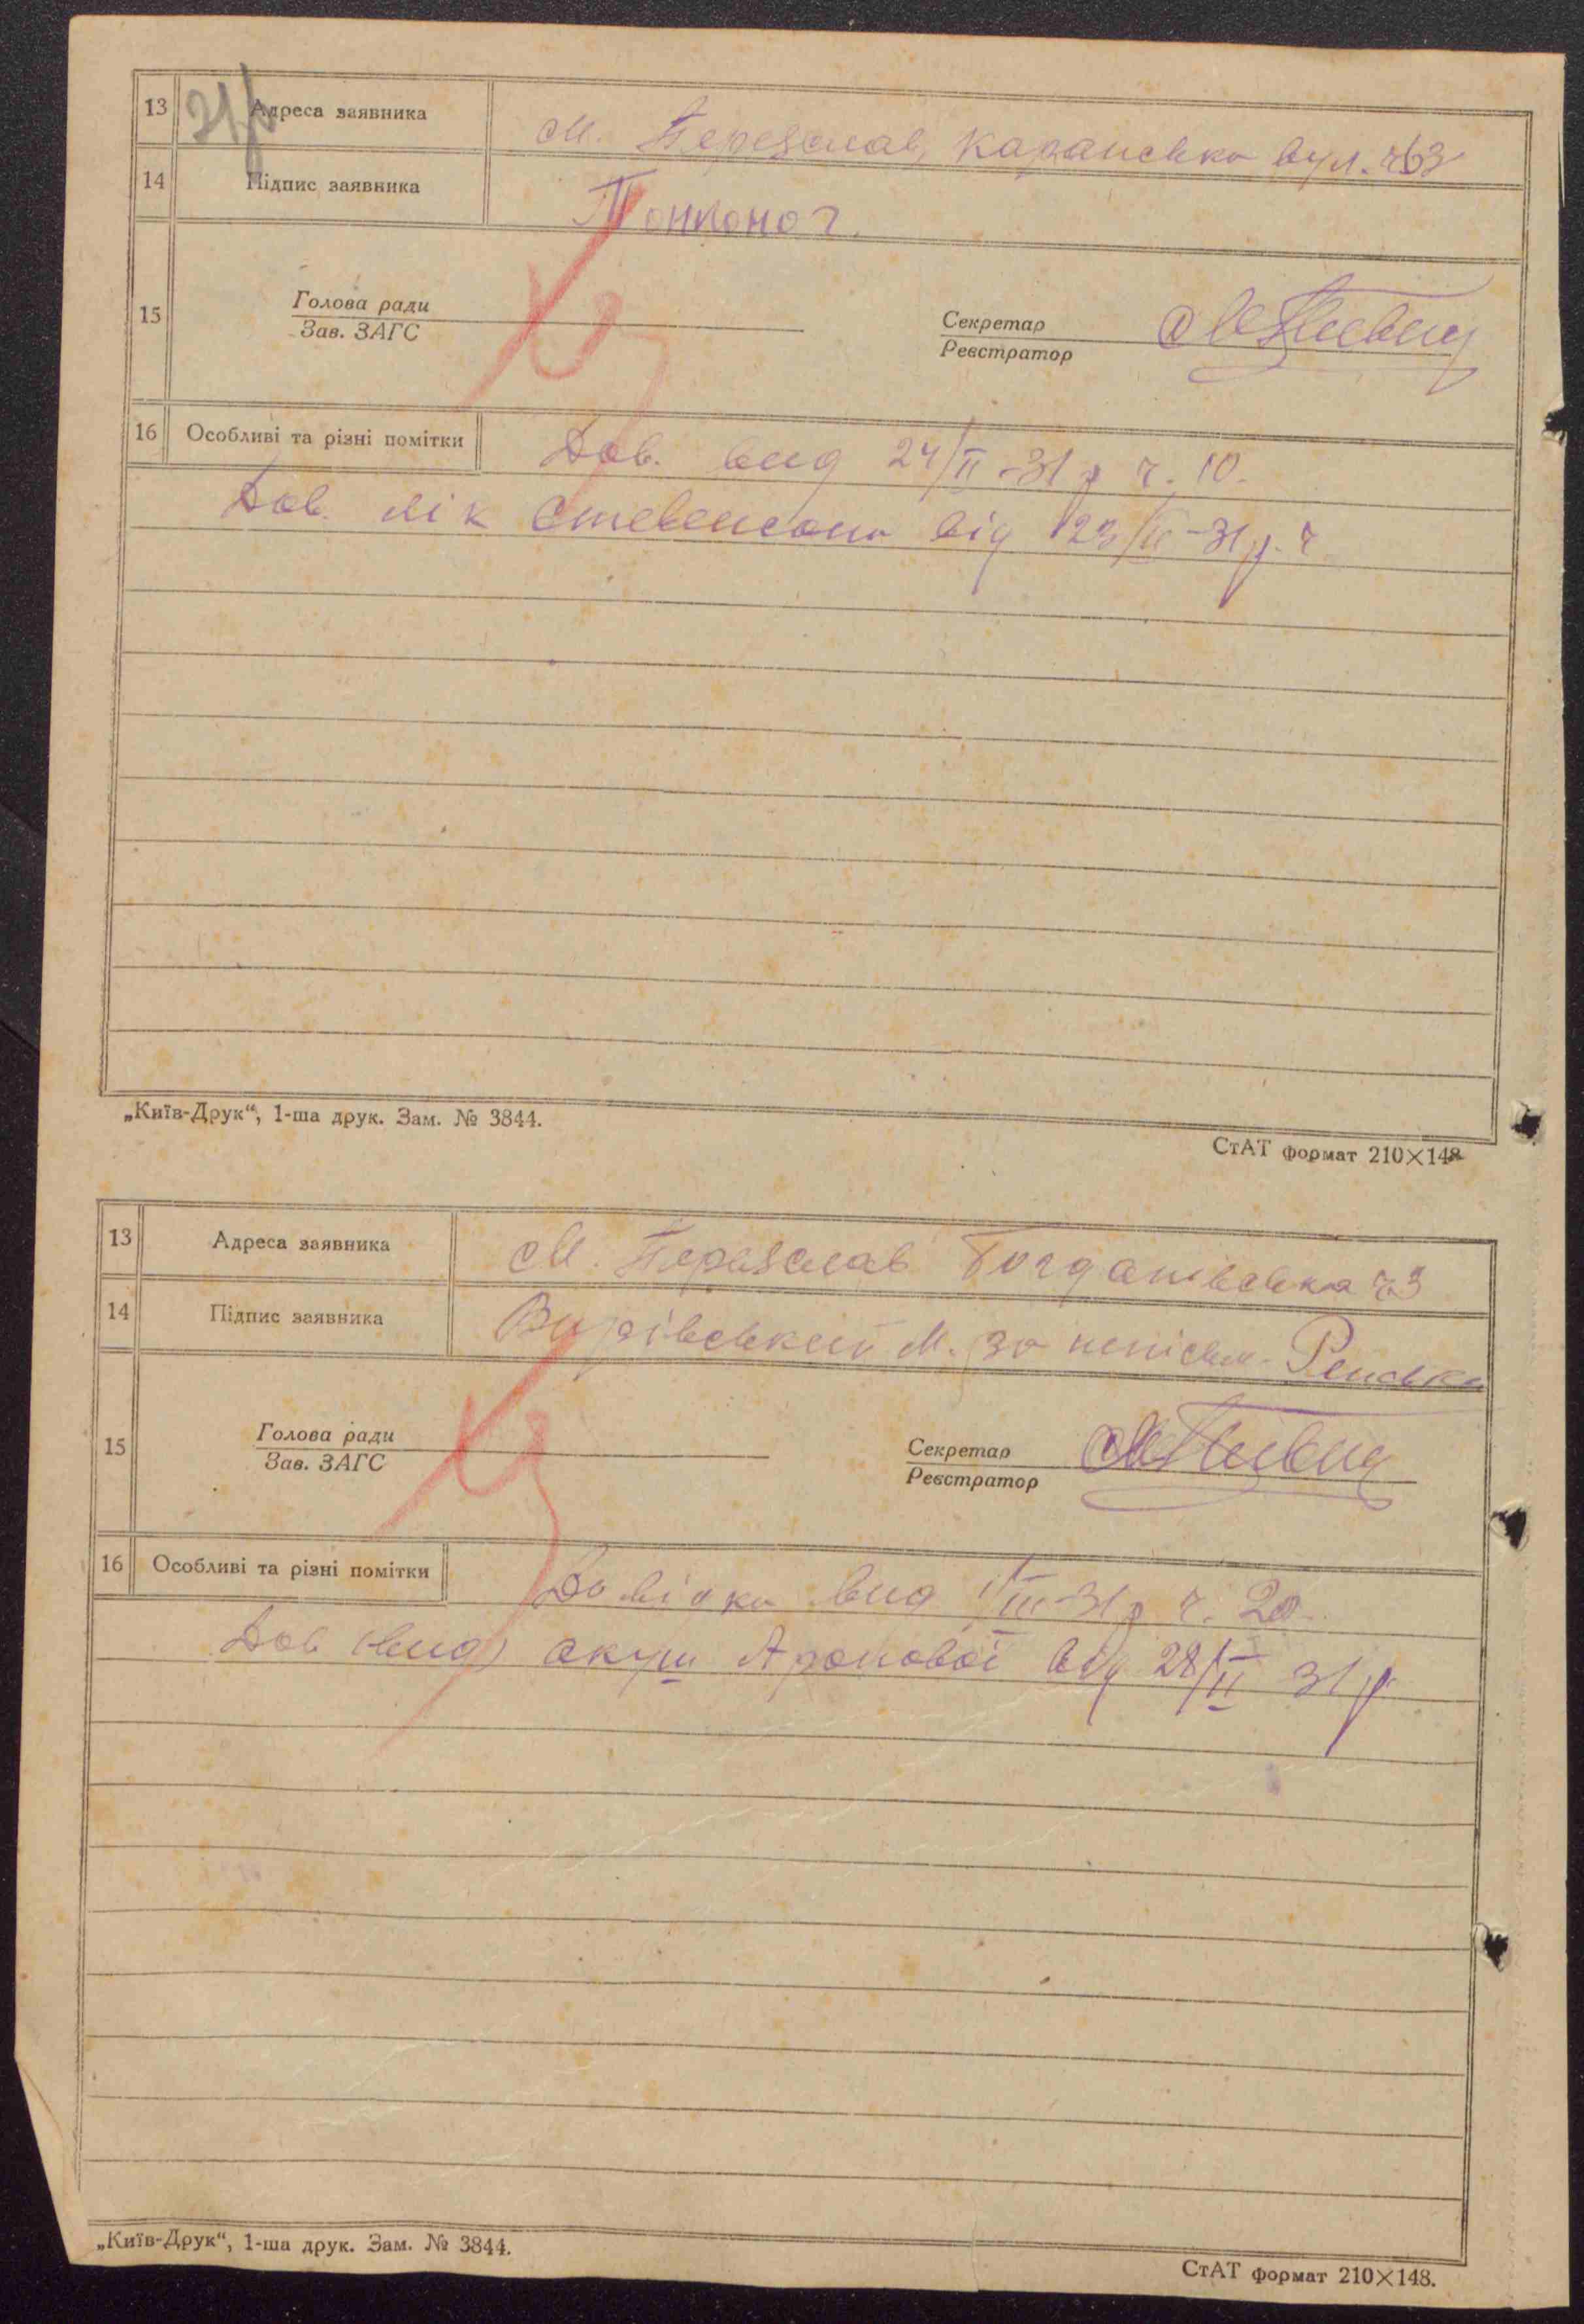 13 Адреса заявника м. Переяслав, Каранська вул. ч63
14 Підпис заявника Тонконог.
15 Голова ради Секретар
Зав. ЗАГС Реєстратор
16 Особливі та різні помітки Дов. вид 24/II-31 р ч. 10.
Дов. лік Стевенсона від 23/II-31 р. ч
„Київ-Друк“, 1-ша друк. Зам. № 3844.
СтАТ формат 210×148
13 Адреса заявника м. Переяслав Богданівська ч3
14 Підпис заявника М. за неписьм.
15 Голова ради Секретар
Зав. ЗАГС Реєстратор
16 Особливі та різні помітки Довідка вид 1/III-31 р ч. 20.
Дов (вид) акуш Аронової від 28/II 31 р
„Київ-Друк“, 1-ша друк. Зам. № 3844.
СтАТ формат 210×148.